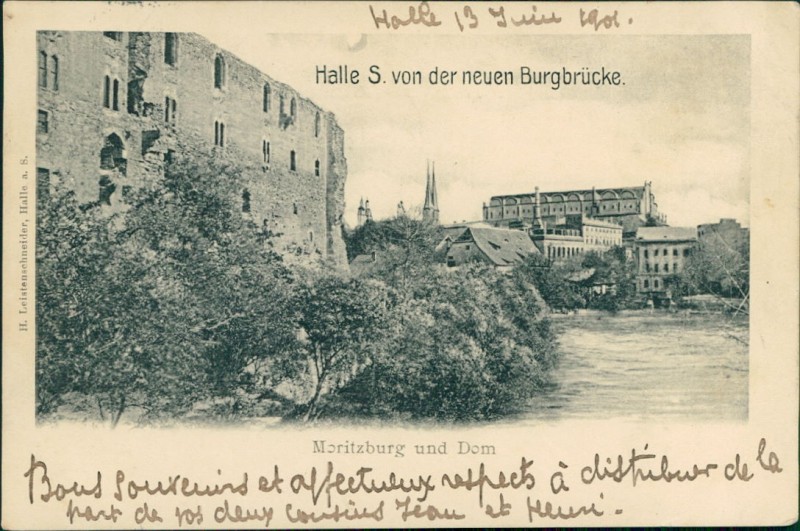 Halle 13 Juin 1901.
Halle S. von der neuen Burgbrücke.
H. Leistenschneider, Halle a. S.
Moritzburg und Dom
Bons Souvenirs et affectueux respects à distribuer de la
part de vos deux cousins Jean et Henri.